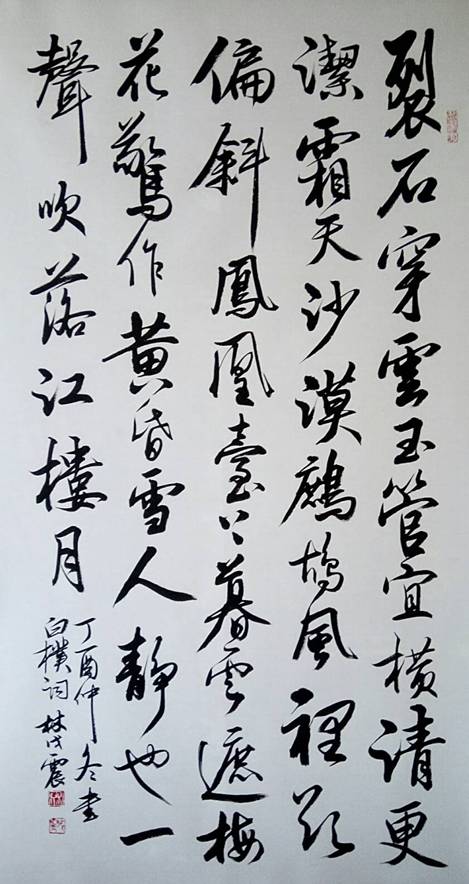 裂石穿雲玉管宜橫清更
潔霜天沙漠鷓鴣風裡欲
偏斜鳳凰臺上暮雲遮梅
花驚作黄昏雪人靜也一
聲吹落江樓月
丁酉仲冬書
白樸詞 林震